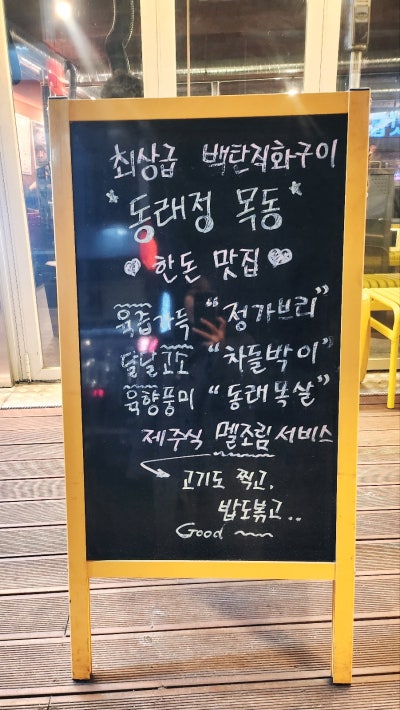 최상급 백탄직화구이
동래정 목동
한돈 맛집
육즙가득 "정가브리"
달달고소 "차돌박이"
육향풍미 "동래목살"
제주식 멜조림 서비스
고기도 찍고,
밥도볶고..
Good